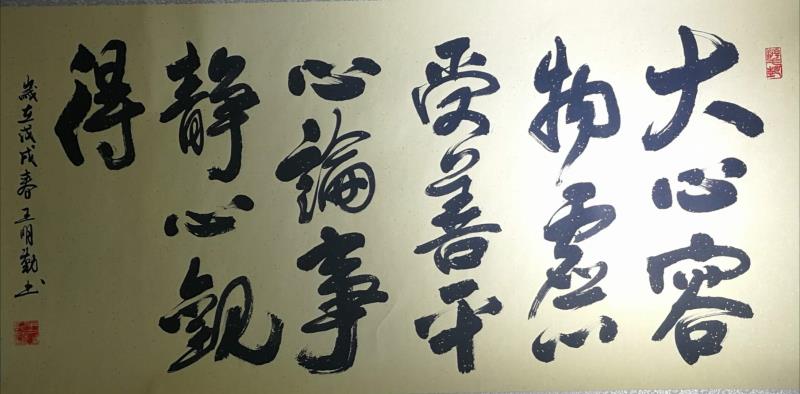 大心容
物虚心
受善平
心論事
静心觀
得
歲在戊戌春王明勤书